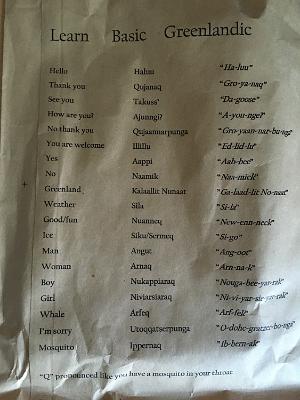 Learn Basic Greenlandic
Hello Haluu "Ha-luu"
Thank you Qujanaq "Gro-ya-naq"
See you Takuss' "Da-goose"
How are you? Ajunngi? "A-you-nge?"
No thank you Qujaannarpunga "Gro-yaan-nar-bu-nga"
You are welcome Illillu "Ed-lid-lu"
Yes Aappi "Aah-bee"
No Naamik "Nan-mick"
Greenland Kalaallit Nunaat "Ga-laad-lit No-naat"
Weather Sila "Si-la"
Good/fun Nuanneq "New-enn-neck"
Ice Siku/Sermeq "Si-go"
Man Angut "Ang-oot"
Woman Arnaq "Arn-na-k"
Boy Nukappiaraq "Nouga-bee-yar-rak"
Girl Niviarsiaraq "Ni-vi-yar-sie-yar-rak"
Whale Arfeq "Arf-fek"
I'm sorry Utoqqatserpunga
Mosquito Ippernaq "Ib-bern-ak"
"Q" pronounced like you have a mosquito in your throat